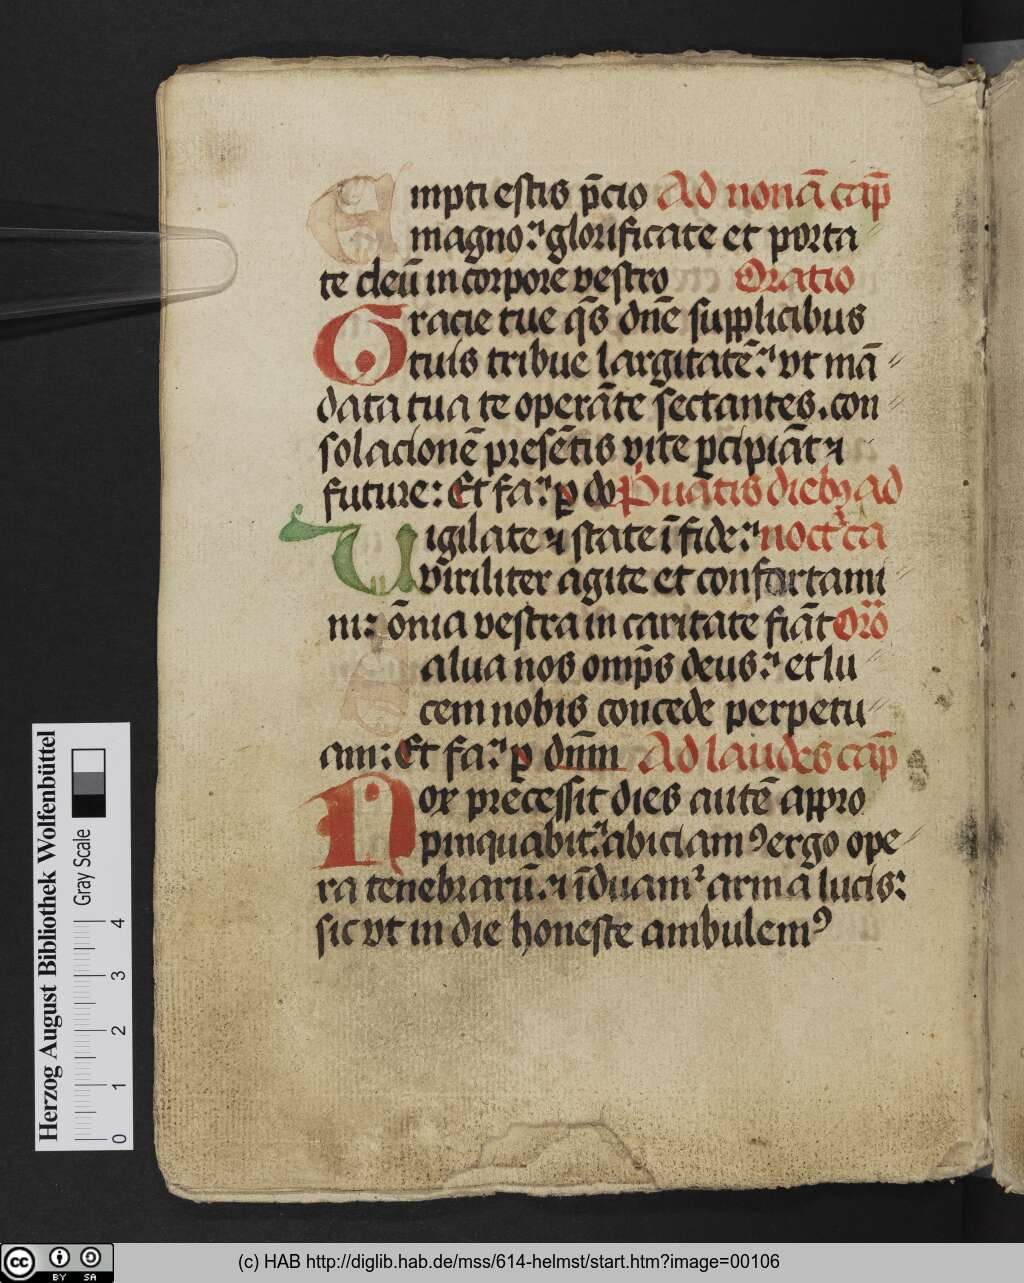 Empti estis p̄cio Ad nonā cap̄
magno:' glorificate et porta
te deū in corpore vestro Oratio
Gracie tue q̄s dn̄e supplicibus
tuis tribue largitatē:' vt mā
data tua te operāte sectantes. con
solacionē presētis vite ꝑcipiāt ⁊
future: Et fa:' ꝑ do Puatis dieb ad
Uigilate ⁊ state ī fide:' noct ca
viriliter agite et confortami
ni: ōnia vestra in caritate fiāt Oro
Salua nos omp̄s deus:' et lu
cem nobis concede perpetu
am: Et fa:' ꝑ dnm̄ Ad laudes cap̄
Nox precessit dies autē appro
pinquabit:' abiciamꝰ ergo ope
ra tenebrarū. ⁊ īduam' arma lucis:
sic vt in die honeste ambulemꝰ
Herzog August Bibliothek Wolfenbüttel
Gray Scale
0 1 2 3 4
cc BY SA
(c) HAB http://diglib.hab.de/mss/614-helmst/start.htm?image=00106